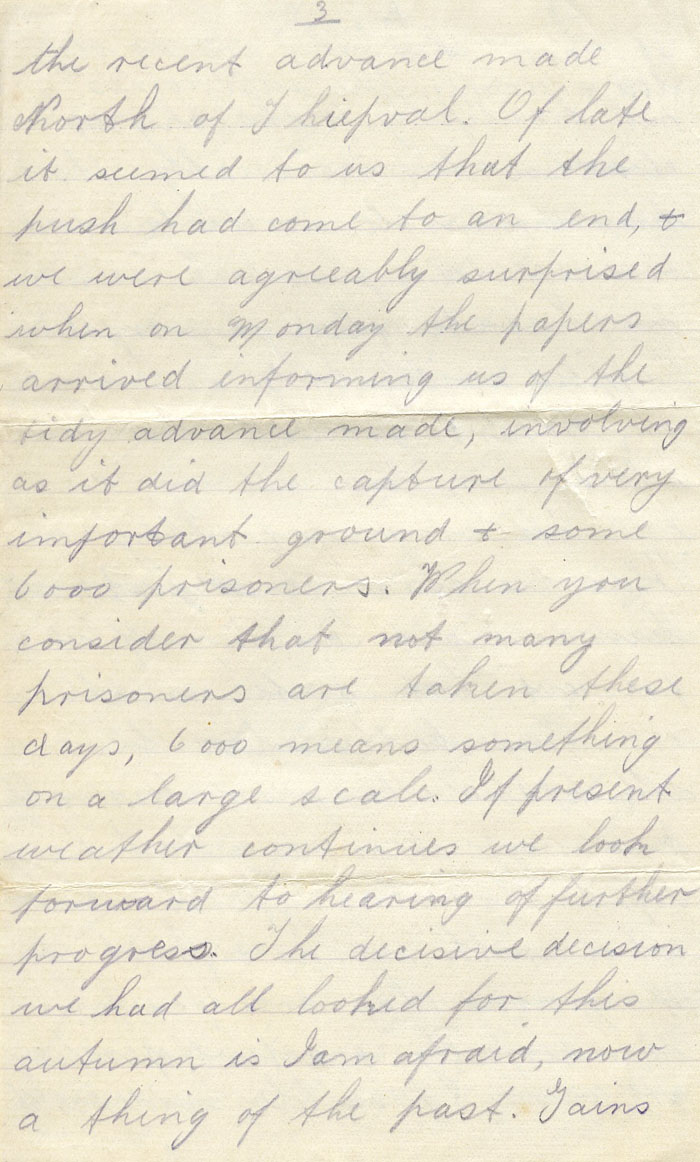 3
the recent advance made
North of Thiepval. Of late
it seemed to us that the
push had come to an end, &
we were agreeably surprised
when on Monday the papers
arrived informing us of the
tidy advance made, involving
as it did the capture of very
important ground & some
6000 prisoners. When you
consider that not many
prisoners are taken these
days, 6000 means something
on a large scale. If present
weather continues we look
forward to hearing of further
progress. The decisive decision
we had all looked for this
autumn is I am afraid, now
a thing of the past. Gains